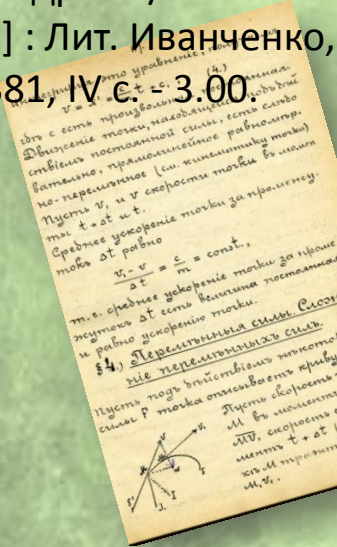 ] : Лит. Иванченко,
381, IV с. - 3.00.
это уравненіе,
(4.)
гдѣ c есть произвольная постоянная.
Движеніе точки, находящейся подъ дѣй
ствіемъ постоянной силы, есть слѣдо
вательно, прямолинейное равномѣр.
но-перемѣнное (см. кинематику точки)
Пусть v₁ и v скорости точки въ момен
ты t + Δt и t.
Среднее ускореніе точки за промежу.
токъ Δt равно
(v₁ - v)/Δt = c/m = const,
т. е. среднее ускореніе точки за проме
жутокъ Δt есть величина постоянная
и равно ускоренію точки.
§ 4.) Перемѣнныя силы. Слож
ніе перемѣнныхъ силъ.
Пусть подъ дѣйствіемъ нѣкото
силы F точка описываетъ криву
Пусть скорость
M въ момент
MV, скорость
ментъ t + Δt
къ M
M₁V₁.